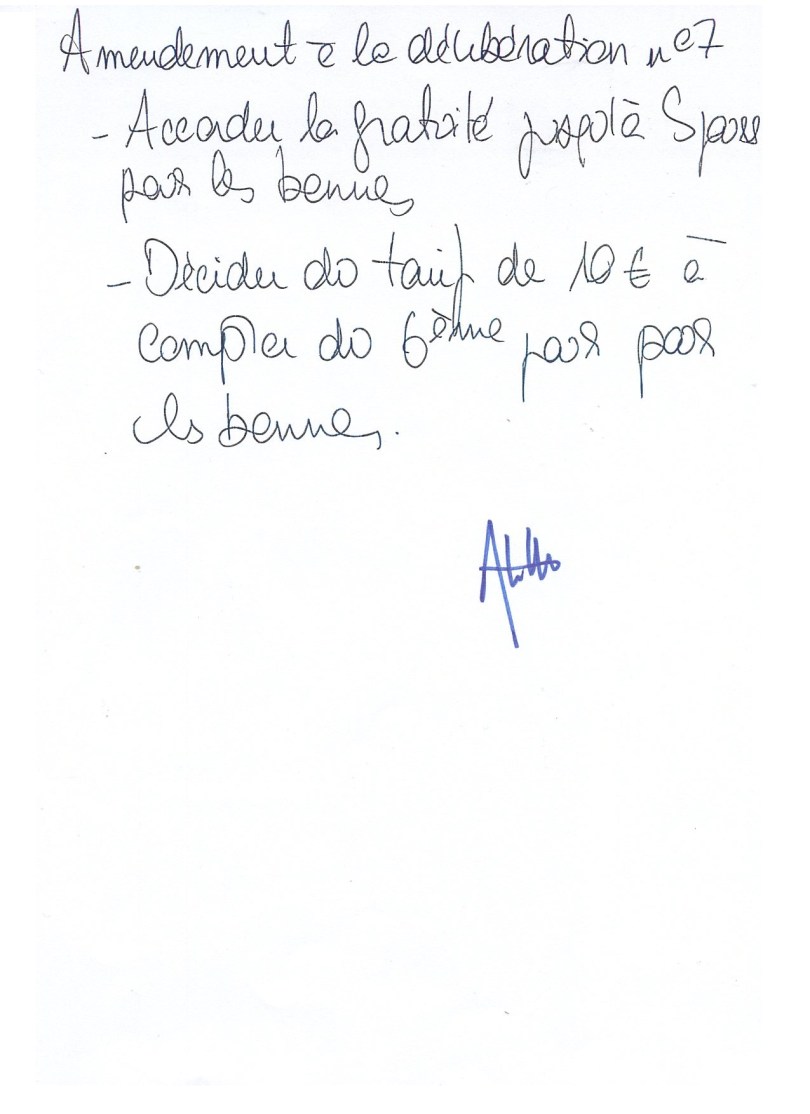 Amendement à la délibération n°7
- Accorder la gratuité jusqu'à 5 jours
pour les bennes
- Décider du tarif de 10 € à
compter du 6ème jour pour
les bennes.